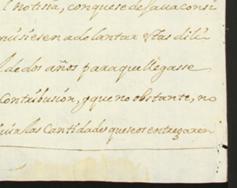 notisia, conque se de
en adelantar estas dili
de dos años para que llegasse
Contribusión, y que no obstante, no
las Cantidades que se os entregaren